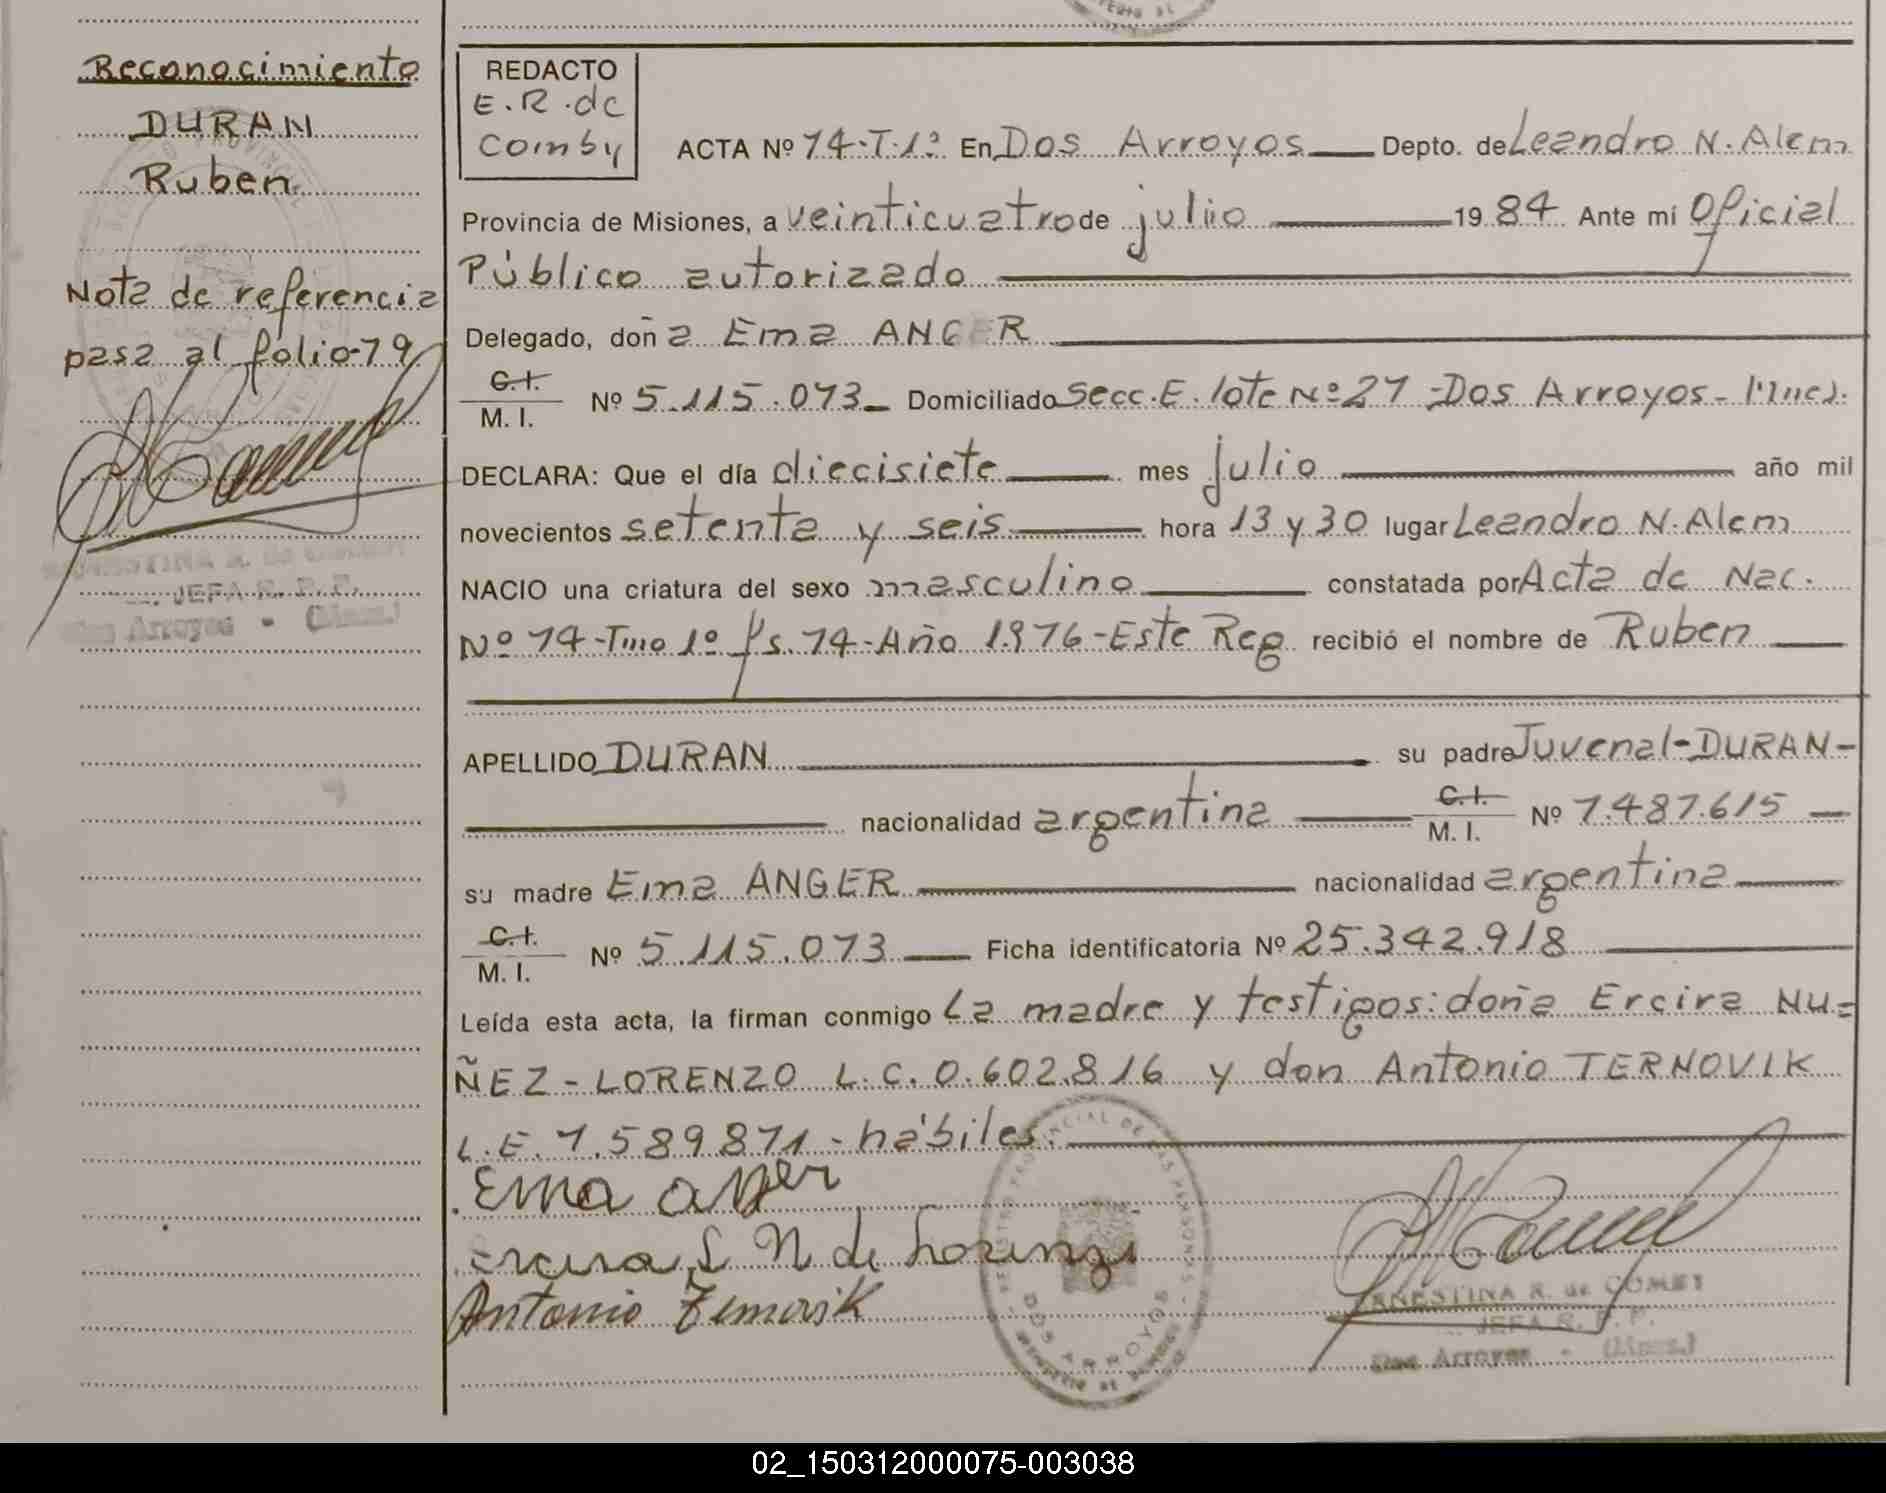 Reconocimiento
DURAN
Ruben
Nota de referencia
pasa al folio-79
JEFA R. P. P.
Dos Arroyos - (Mnes.)
REDACTO
E.R.de
Comby
ACTA Nº 74-T-1º En Dos Arroyos Depto. de Leandro N. Alem
Provincia de Misiones, a veinticuatro de julio 19 84 Ante mí Oficial
Público autorizado
Delegado, doña Ema ANGER
C.I.
M. I. Nº 5.115.073 Domiciliado Secc.E. lote Nº 27 -Dos Arroyos- Mnes.
DECLARA: Que el día diecisiete mes julio año mil
novecientos setenta y seis hora 13 y 30 lugar Leandro N. Alem
NACIO una criatura del sexo masculino constatada por Acta de Nac.
Nº 74-Tmo 1º fs. 74-Año 1976-Este Reg recibió el nombre de Ruben
APELLIDO DURAN su padre Juvenal-DURAN-
nacionalidad argentina C.I. M. I. Nº 7.487.615
su madre Ema ANGER nacionalidad argentina
C.I.
M. I. Nº 5.115.073 Ficha identificatoria Nº 25.342.918
Leída esta acta, la firman conmigo La madre y testigos: doña Ercira NU=
ÑEZ-LORENZO L.C. 0.602.816 y don Antonio TERNOVIK
L.E. 7.589.871-hábiles.
Ema anger
Antonio Ternovik
DOS ARROYOS
ERNESTINA R. de COMBY
JEFA R. P. P.
Dos Arroyos - (Mnes.)
02_150312000075-003038